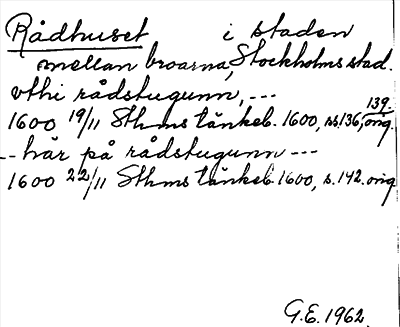 Rådhuset i staden
mellan broarna, Stockholms stad.
vthi rådstugunn, ---
1600 19/11 Sthms tänkeb. 1600, ss. 136, 139. orig.
-- här på rådstugunn ---
1600 22/11 Sthms tänkeb. 1600, s. 142. orig
G.E. 1962.